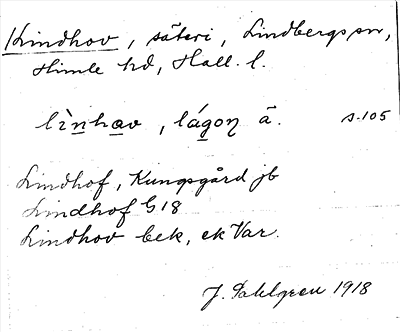 Lindhov, säteri, Lindbergs sn,
Himle hd, Hall. l.
lìnhav, lágoŋ ä. s. 105
Lindhof, Kungsgård jb
Lindhof G18
Lindhov bek, ek Var.
J. Dahlgren 1918